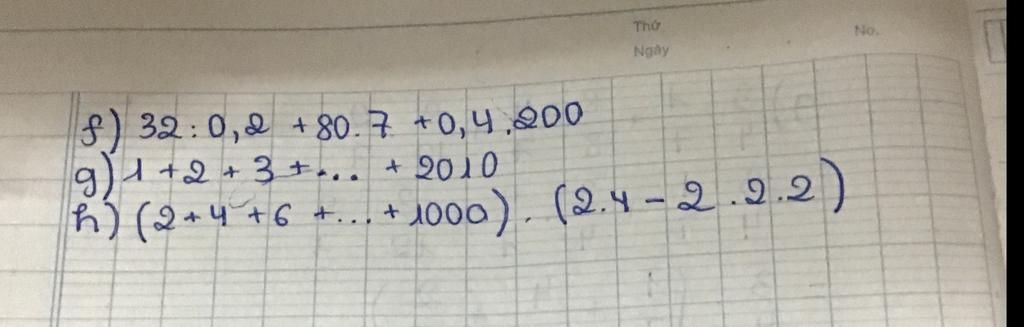 Thứ
Ngày
No.
f) 32 : 0,2 + 80.7 + 0,4.200
g) 1 + 2 + 3 + ... + 2010
h) (2 + 4 + 6 + ... + 1000) . (2.4 - 2 . 2.2)